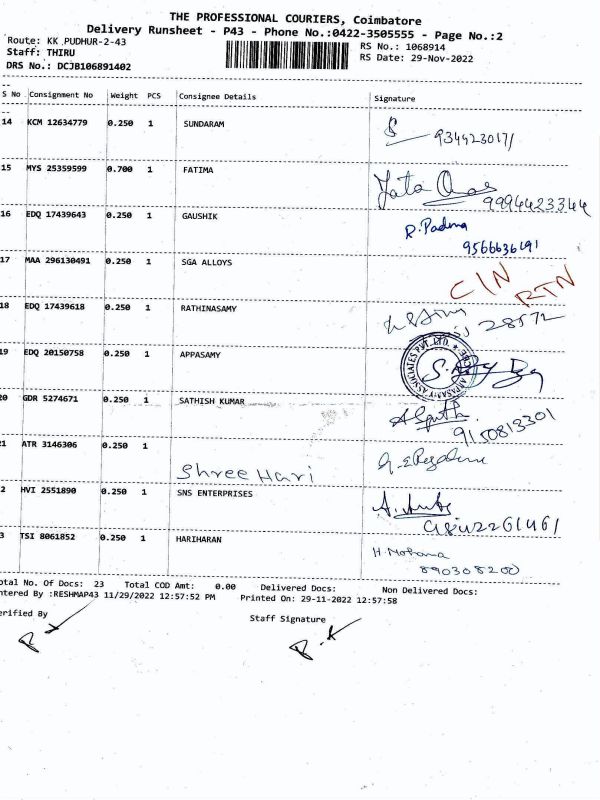 THE PROFESSIONAL COURIERS, Coimbatore
Delivery Runsheet - P43 - Phone No.:0422-3505555 - Page No.:2
Route: KK PUDHUR-2-43
RS No.: 1068914
Staff: THIRU
RS Date: 29-Nov-2022
DRS No.: DCJB106891402
S No Consignment No Weight PCS Consignee Details Signature
14 KCM 12634779 0.250 1 SUNDARAM
934423017/
15 MYS 25359599 0.700 1 FATIMA
9994423344
16 EDQ 17439643 0.250 1 GAUSHIK R. Padma
9566636191
17 MAA 296130491 0.250 1 SGA ALLOYS C/N RTN
18 EDQ 17439618 0.250 1 RATHINASAMY
28572
19 EDQ 20150758 0.250 1 APPASAMY
20 GDR 5274671 0.250 1 SATHISH KUMAR
9150813301
21 ATR 3146306 0.250 1
Shree Hari
2 HVI 2551890 0.250 1 SNS ENTERPRISES
3 TSI 8061852 0.250 1 HARIHARAN H. Mohana
8903085200
otal No. Of Docs: 23 Total COD Amt: 0.00 Delivered Docs: Non Delivered Docs:
ntered By :RESHMAP43 11/29/2022 12:57:52 PM Printed On: 29-11-2022 12:57:58
erified By Staff Signature
R.K